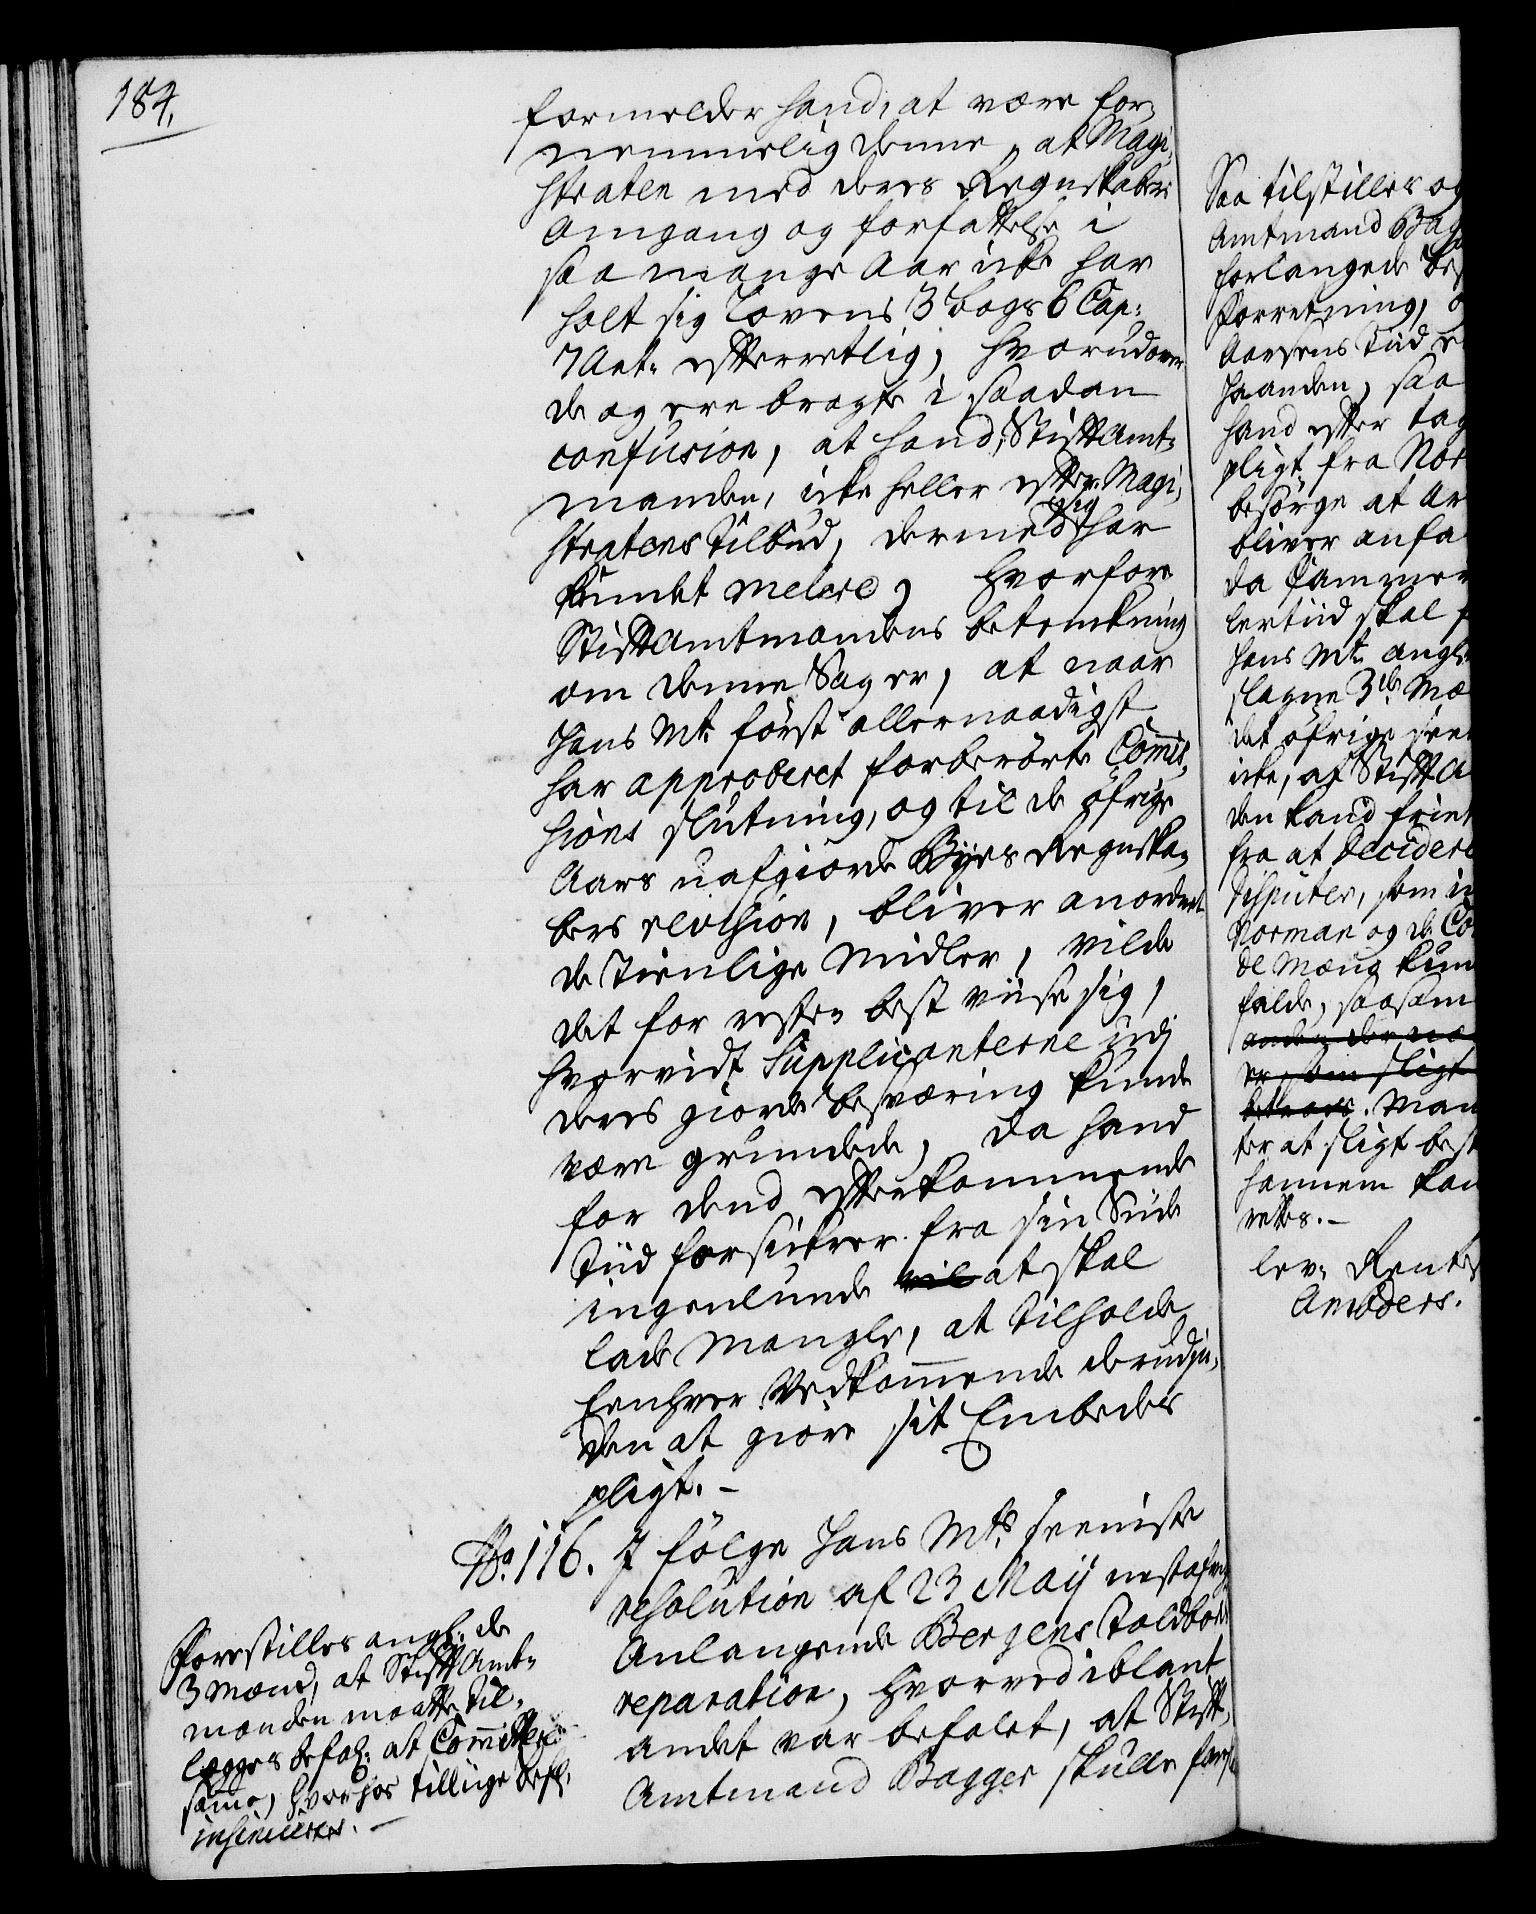 184.
formelder hand, at være for-
nemmelig denne, at Magi-
straten med deres Regnskabers
Omgang og forfattelse i
saa mange Aar icke har
holt sig Lovens 3 bogs 6 Cap:
7 Art: efterretlig, hvorudover
de og ere bragte i saadan
confusion, at hand, Stiftamt-
manden, icke heller efter Magi-
stratens tilbud, dermed sig har
kundet melere, hvorfore
Stiftamtmandens betenkning
om denne Sag er, at naar
Hans Mt. först allernaadigst
har approberet forberörte Commis-
sions slutning, og til de öfrige
Aars uafgiorde Byes Regnska-
bers revision, bliver anordnet
de tienlige Midler, vilde
det for resten best viise sig,
hvorvidt Supplicanterne udj
deres giorde besværing kunde
være grundede, da hand
for dend efterkommende
Tiid forsikrer fra sin Siide
ingenlunde vil at skal
lade mangle, at tilholde
Eenhver Vedkommende derudju-
den at giöre sit Embedes
pligt.-
No. 116. I fölge Hans Mts. seeniste
resolution af 23 Maij nestafvigt
Anlangende Bergens Toldbod
reparation, hvorved iblant
andet var befalet, at Stift-
Amtmand Bagger skulle
Forestilles angl: de
3 Mænd, at Stiftamt-
manden maatte til-
lægges befal: at Committere
samme, hvorhos tillige
insinueres.-
Saa tilstilles og
Amtmand Bag
forlangede
forretning,
Aarsens Tiid
haanden, saa
hand efter tag
pligt fra Nor
besörge at ar
bliver anfa
da Cammer
lertiid skal
Hans Mt. angl
slagne 3de Mæ
det öfrige
icke, at Stift A
den kand
fra at Decidere
Disputer, som
Norman og de Co
de Mænd kun
falde, saasom
anden der
er som sligt
betroes. Man
ter at sligt best
hannem kan
rettes.-
lev: Rente
Amoders.